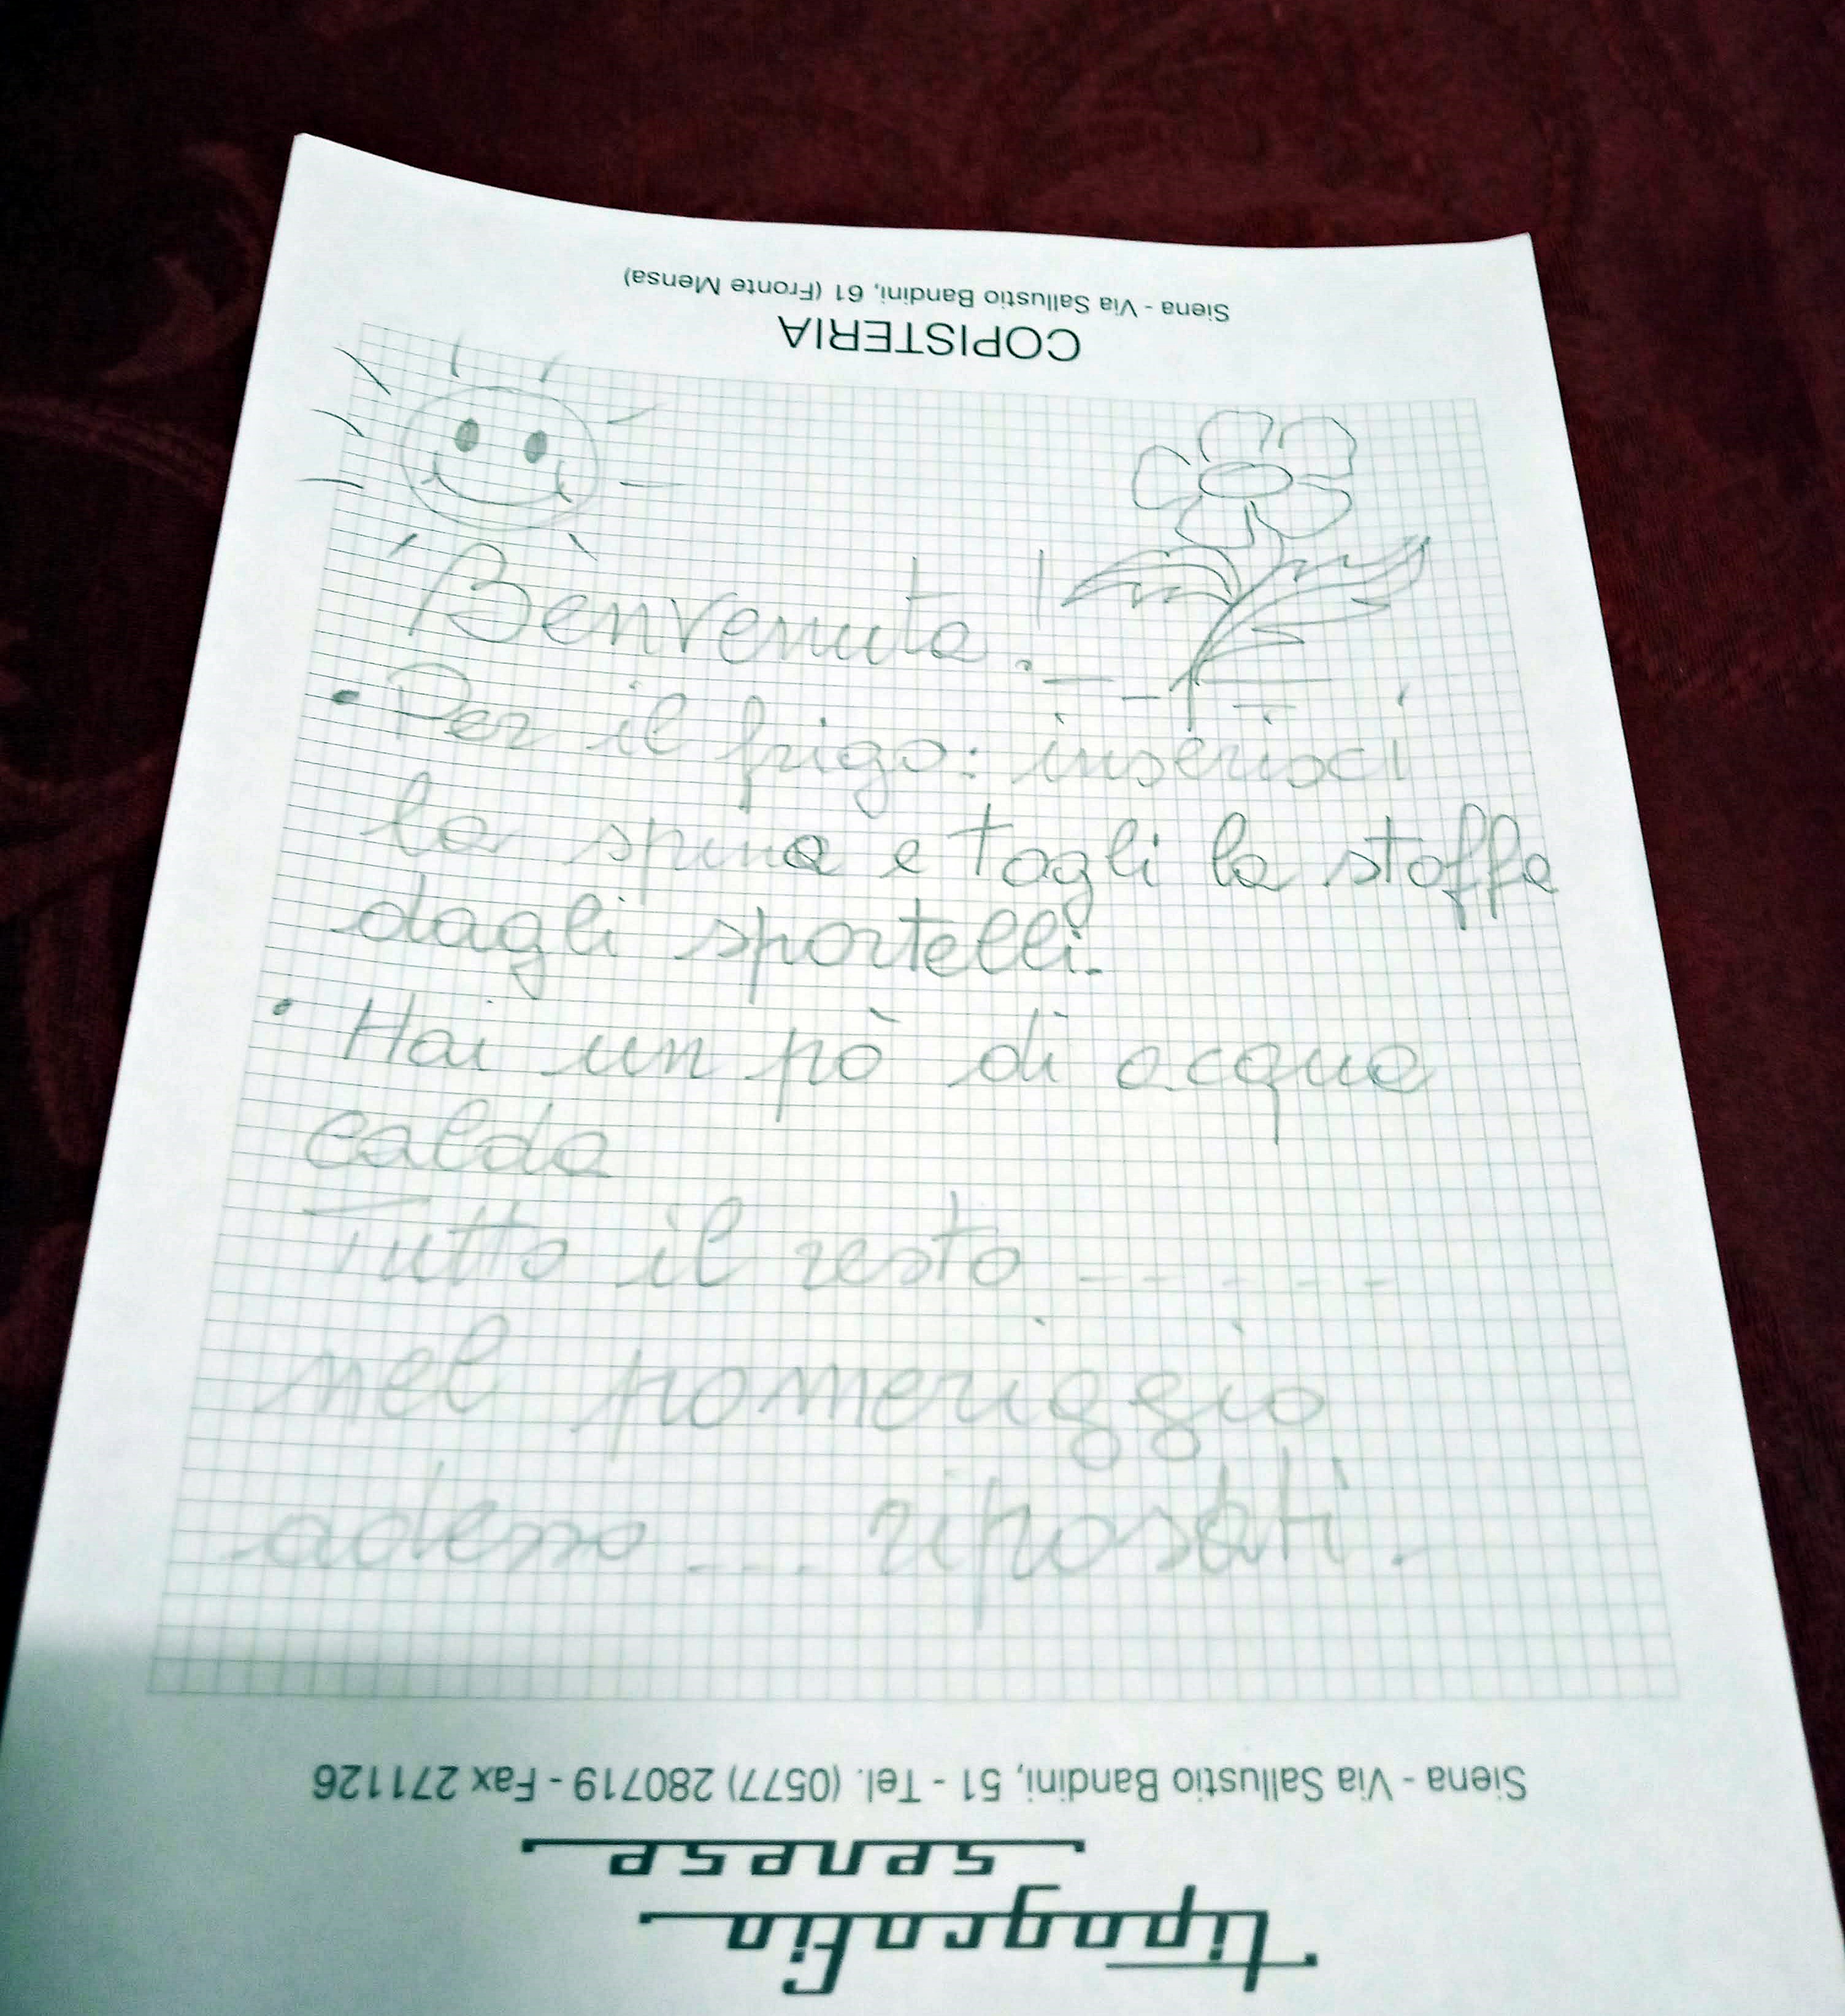 Siena - Via Sallustio Bandini, 61 (Fronte Mensa)
COPISTERIA
Benvenuta!
• Per il frigo: inserisci
la spina e togli la stoffa
dagli sportelli.
• Hai un pò di acqua
calda
Tutto il resto ------
nel pomeriggio
adesso ... riposati.
Siena - Via Sallustio Bandini, 51 - Tel. (0577) 280719 - Fax 271126
senese
tipografia